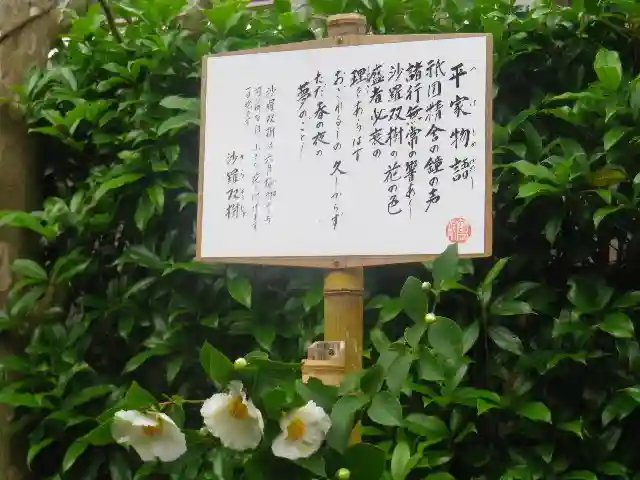 平家物語
祇園精舎の鐘の声
諸行無常の響あり
沙羅双樹の花の色
盛者必衰の
理をあらはす
おごれるものは久しからず
ただ春の夜の
夢のごとし
沙羅双樹は
沙羅双樹